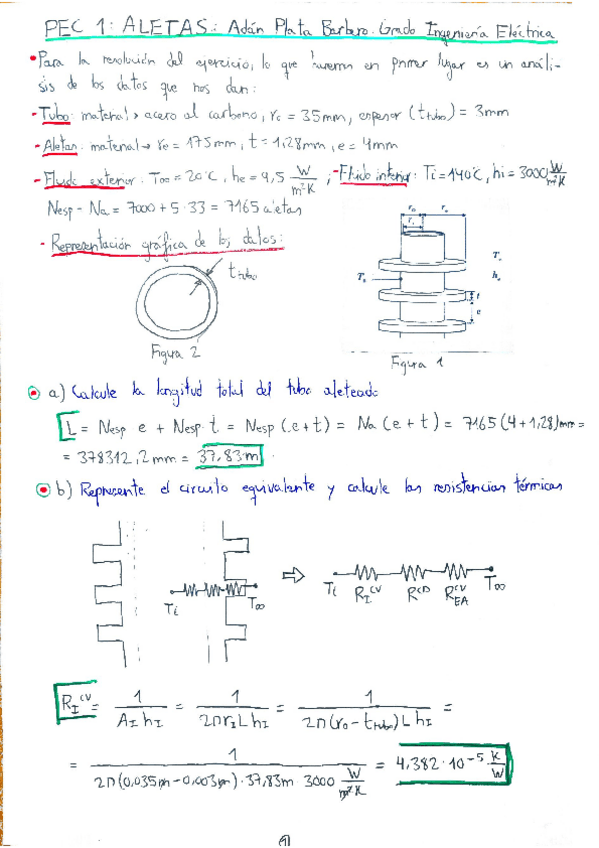 PEC 1: ALETAS: Adán Plata Barbero. Grado Ingeniería Eléctrica
• Para la resolución del ejercicio, lo que haremos en primer lugar es un análi-
sis de los datos que nos dan:
- Tubo: material → acero al carbono, rc = 35mm, espesor (t tubo) = 3mm
- Aletas: material → re = 175mm, t = 1,28mm, e = 4mm
- Fluido exterior: T∞ = 20°C, he = 9,5 W/m²K ; - Fluido interior: Ti = 140°C, hi = 3000 W/m²K
Nesp - Na = 7000 + 5·33 = 7165 aletas
- Representación gráfica de los datos:
t tubo
Figura 2
Figura 1
a) Calcule la longitud total del tubo aleteado
L = Nesp e + Nesp t = Nesp (e+t) = Na (e+t) = 7165 (4+1,28)mm =
= 378312,2 mm = 37,83 m
b) Represente el circuito equivalente y calcule las resistencias térmicas
Ti T∞ ⇒ Ti R_I^CV R^CD R_EA^CV T∞
R_I^CV = 1/(A_I h_I) = 1/(2π r_I L h_I) = 1/(2π(r0 - t tubo) L h_I) =
= 1/(2π(0,035m - 0,003m)·37,83m·3000 W/m²K) = 4,382·10^-5 K/W
1